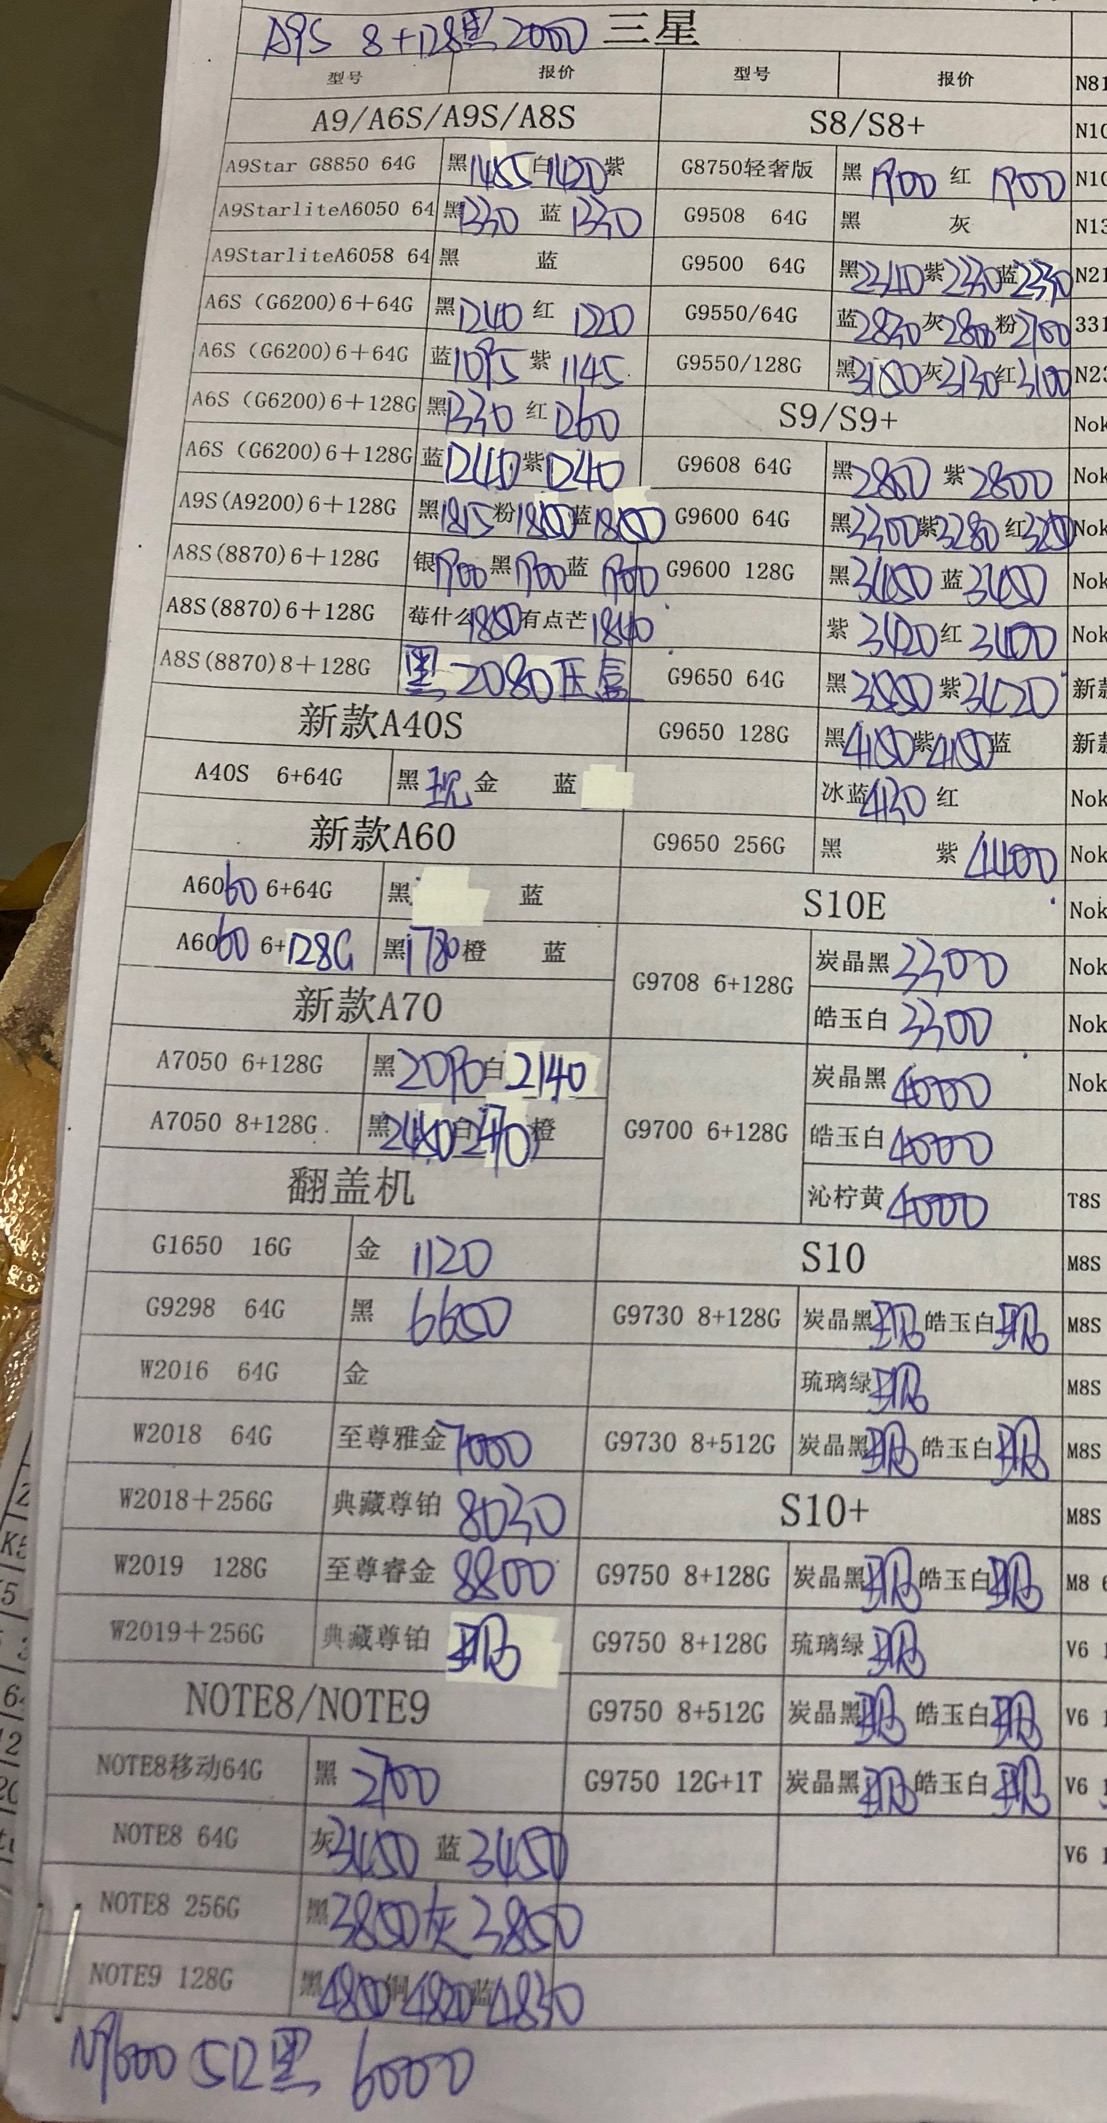 A9S 8+128黑2000 三星
型号 报价 型号 报价 N81
A9/A6S/A9S/A8S S8/S8+
A9Star G8850 64G 黑1455白1420紫 G8750轻奢版 黑1700 红1700
A9StarliteA6050 64 黑1330 蓝1330 G9508 64G 黑 灰 N13
A9StarliteA6058 64 黑 蓝 G9500 64G 黑2340紫2330蓝2330 N21
A6S (G6200)6+64G 黑1240 红1220 G9550/64G 蓝2830灰2800粉2700 331
A6S (G6200)6+64G 蓝1095 紫1145 G9550/128G 黑3180灰3130红3100 N23
A6S (G6200)6+128G 黑1330 红1260 S9/S9+ Nok
A6S (G6200)6+128G 蓝1240紫1240 G9608 64G 黑2800 紫2800 Nok
A9S(A9200)6+128G 黑1815粉1800蓝1800 G9600 64G 黑3300紫3280红 Nok
A8S(8870)6+128G 银1700黑1700蓝1700 G9600 128G 黑3450 蓝3450 Nok
A8S(8870)6+128G 莓什么1850有点芒1840 紫3420红3400 Nok
A8S(8870)8+128G 黑2080压盒 G9650 64G 黑紫 新款
新款A40S G9650 128G 黑4180紫4180蓝 新款
A40S 6+64G 黑现金 蓝 冰蓝4130 红 Nok
新款A60 G9650 256G 黑 紫4400 Nok
A6060 6+64G 黑 蓝 S10E Nok
A6060 6+128G 黑1780橙 蓝 G9708 6+128G 炭晶黑3300 Nok
新款A70 皓玉白3300 Nok
A7050 6+128G 黑2090白2140 炭晶黑4000 Nok
A7050 8+128G 黑白橙 G9700 6+128G 皓玉白4000
翻盖机 沁柠黄4000 T8S
G1650 16G 金1120 S10 M8S
G9298 64G 黑6650 G9730 8+128G 炭晶黑现皓玉白现 M8S
W2016 64G 金 琉璃绿现 M8S
W2018 64G 至尊雅金7000 G9730 8+512G 炭晶黑现皓玉白现 M8S
W2018+256G 典藏尊铂8030 S10+ M8S
W2019 128G 至尊睿金8800 G9750 8+128G 炭晶黑现皓玉白现 M8 6
W2019+256G 典藏尊铂现 G9750 8+128G 琉璃绿现 V6 1
NOTE8/NOTE9 G9750 8+512G 炭晶黑现皓玉白现 V6 1
NOTE8移动64G 黑2700 G9750 12G+1T 炭晶黑现皓玉白现 V6 1
NOTE8 64G 灰3450 蓝3450 V6 1
NOTE8 256G 黑3850灰3850
NOTE9 128G 黑4800铜4820蓝4830
N9600 512黑 6000